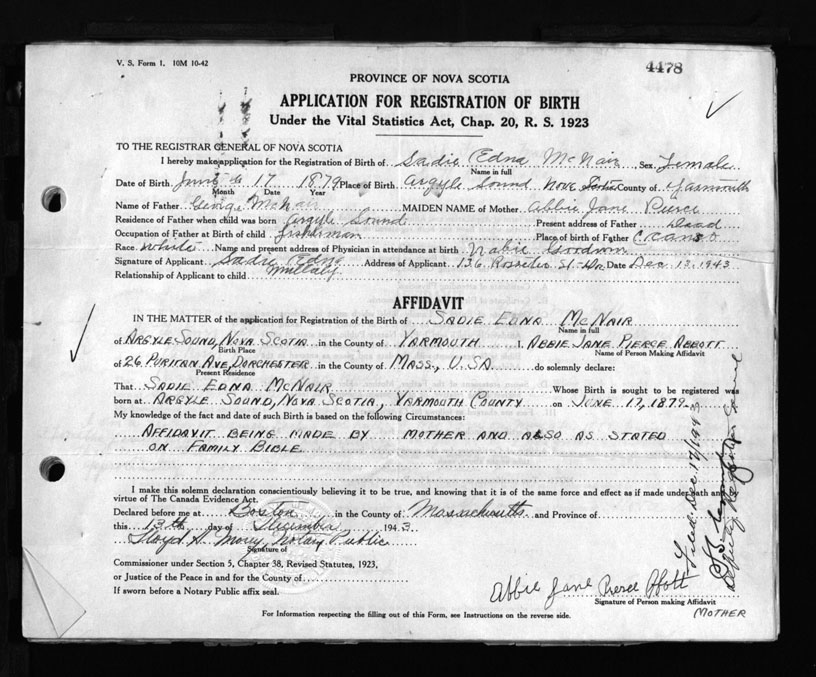 V. S. Form 1. 10M 10-42
4478
PROVINCE OF NOVA SCOTIA
APPLICATION FOR REGISTRATION OF BIRTH
Under the Vital Statistics Act, Chap. 20, R. S. 1923
TO THE REGISTRAR GENERAL OF NOVA SCOTIA
I hereby make application for the Registration of Birth of Sadie Edna McNair Sex Female
Name in full
Date of Birth June 17 1879 Place of Birth Argyle Sound Nova Scotia County of Yarmouth
Month Date Year
Name of Father George McNair MAIDEN NAME of Mother Abbie Jane Pierce
Residence of Father when child was born Argyle Sound Present address of Father Dead
Occupation of Father at Birth of child fisherman Place of birth of Father Canso
Race White Name and present address of Physician in attendance at birth Goodwin
Signature of Applicant Sadie Edna Mullaly Address of Applicant 136 St. Date Dec 13, 1943
Relationship of Applicant to child
AFFIDAVIT
IN THE MATTER of the application for Registration of the Birth of SADIE EDNA MCNAIR
Name in full
of ARGYLE SOUND, NOVA SCOTIA in the County of YARMOUTH I, ABBIE JANE PIERCE ABBOTT
Birth Place Name of Person Making Affidavit
of 26 PURITAN AVE, DORCHESTER in the County of MASS., U.S.A. do solemnly declare:
Present Residence
That SADIE EDNA MCNAIR Whose Birth is sought to be registered was
born at ARGYLE SOUND, NOVA SCOTIA, YARMOUTH COUNTY on JUNE 17, 1879
My knowledge of the fact and date of such Birth is based on the following Circumstances:
AFFIDAVIT BEING MADE BY MOTHER AND ALSO AS STATED
ON FAMILY BIBLE
I make this solemn declaration conscientiously believing it to be true, and knowing that is of the same force and effect as if made under oath and by
virtue of The Canada Evidence Act.
Declared before me at Boston in the County of Massachusetts and Province of
this 13th day of December 1943
Lloyd A. Notary Public
Signature of
Commissioner under Section 5, Chapter 38, Revised Statutes, 1923,
or Justice of the Peace in and for the County of
If sworn before a Notary Public affix seal.
Abbie Jane Pierce Abbott
Signature of Person making Affidavit
MOTHER
For Information respecting the filling out of this Form, see Instructions on the reverse side.
Filed Dec 17/1943
Deputy Registrar General